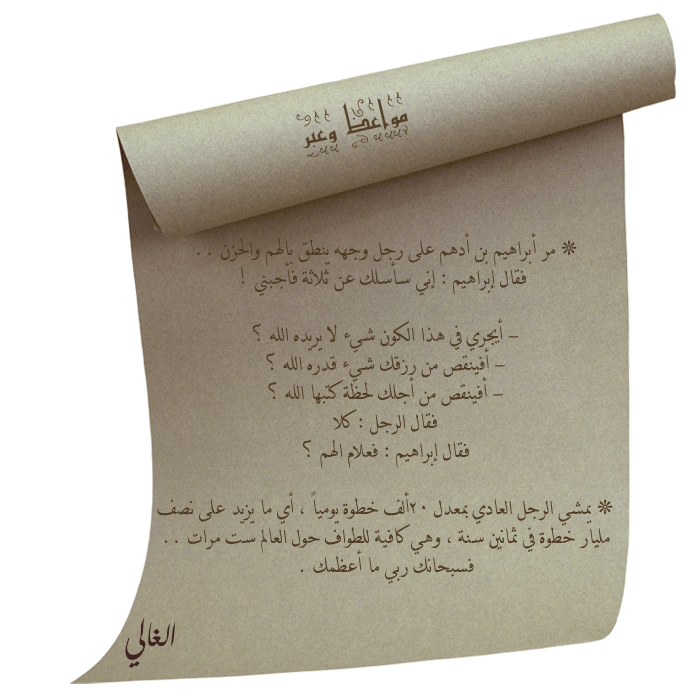 مواعظ وعبر
❊ مر أبراهيم بن أدهم على رجل وجهه ينطق بالهم والحزن . .
فقال إبراهيم : إني سأسلك عن ثلاثة فأجبني !
– أيجري في هذا الكون شيء لا يريده الله ؟
– أفينقص من رزقك شيء قدره الله ؟
– أفينقص من أجلك لحظة كتبها الله ؟
فقال الرجل : كلا
فقال إبراهيم : فعلام الهم ؟
❊ يمشي الرجل العادي بمعدل ٢٠ألف خطوة يومياً ، أي ما يزيد على نصف
مليار خطوة في ثمانين سنة ، وهي كافية للطواف حول العالم ست مرات . .
فسبحانك ربي ما أعظمك .
الغالي